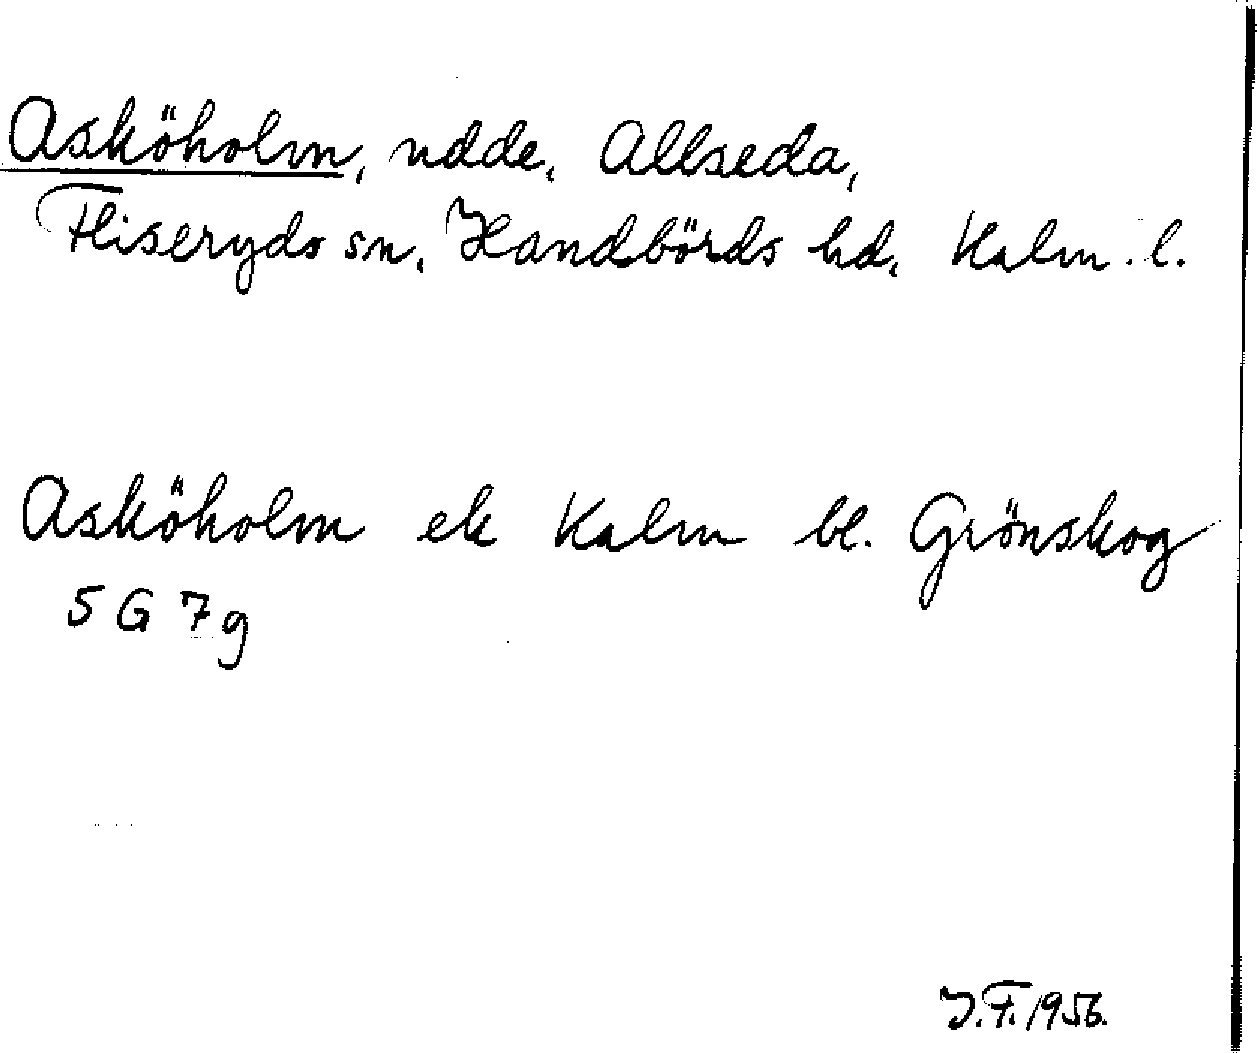 Asköholm, udde, Allseda,
Fliseryds sn, Handbörds hd, Kalm. l.
Asköholm ek Kalm bl. Grönskog
5 G 7 g
J.F. 1956.